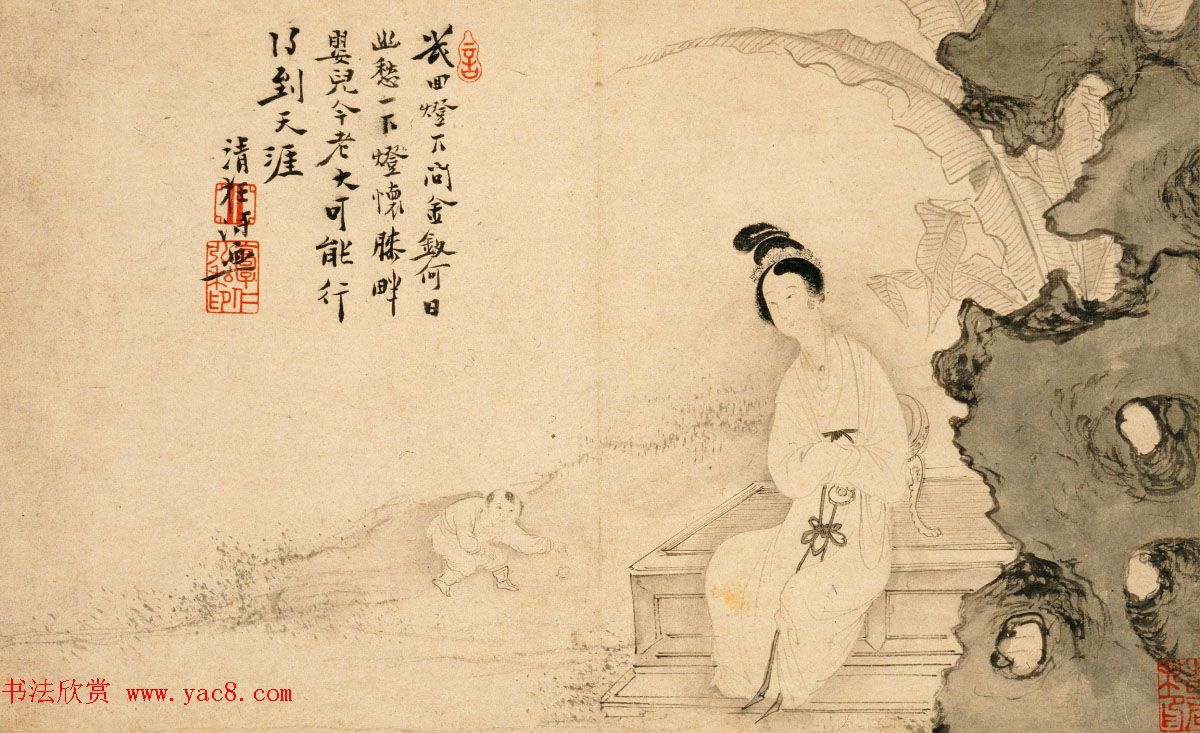 幾回燈下問金釵何日
此愁一下燈懷膝畔
嬰兒今老大可能行
得到天涯
清狂詩
书法欣赏 www.yac8.com